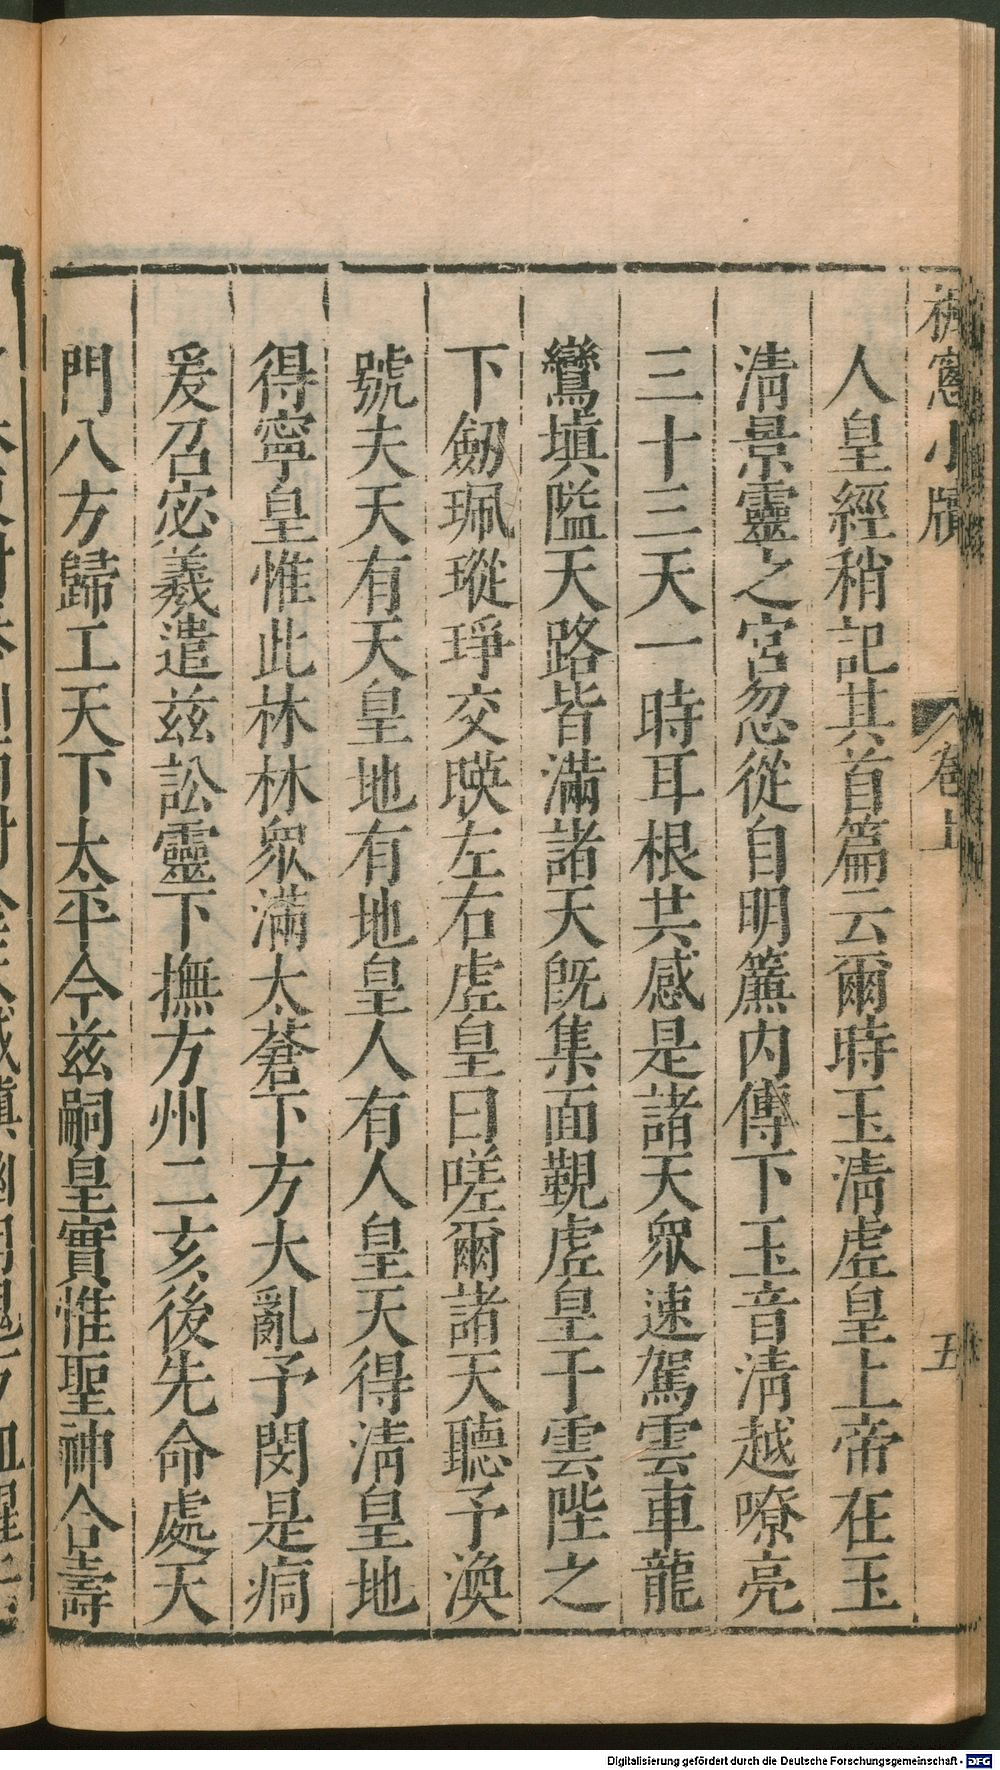 楓窻小牘 卷上 五
人皇經稍記其首篇云爾時玉淸虛皇上帝在玉
淸景靈之宮忽從自明簾内傳下玉音淸越嘹亮
三十三天一時耳根共感是諸天衆速駕雲車龍
鸞塡隘天路皆滿諸天旣集面覲虛皇于雲陛之
下劒珮瑽琤交暎左右虛皇曰嗟爾諸天聽予渙
號夫天有天皇地有地皇人有人皇天得淸皇地
得寧皇惟此林林衆滿太蒼下方大亂予閔是痌
爰召宓羲遣茲訟靈下撫方州二亥後先命處天
門八方歸工天下太平今茲嗣皇實惟聖神合壽
Digitalisierung gefördert durch die Deutsche Forschungsgemeinschaft - DFG